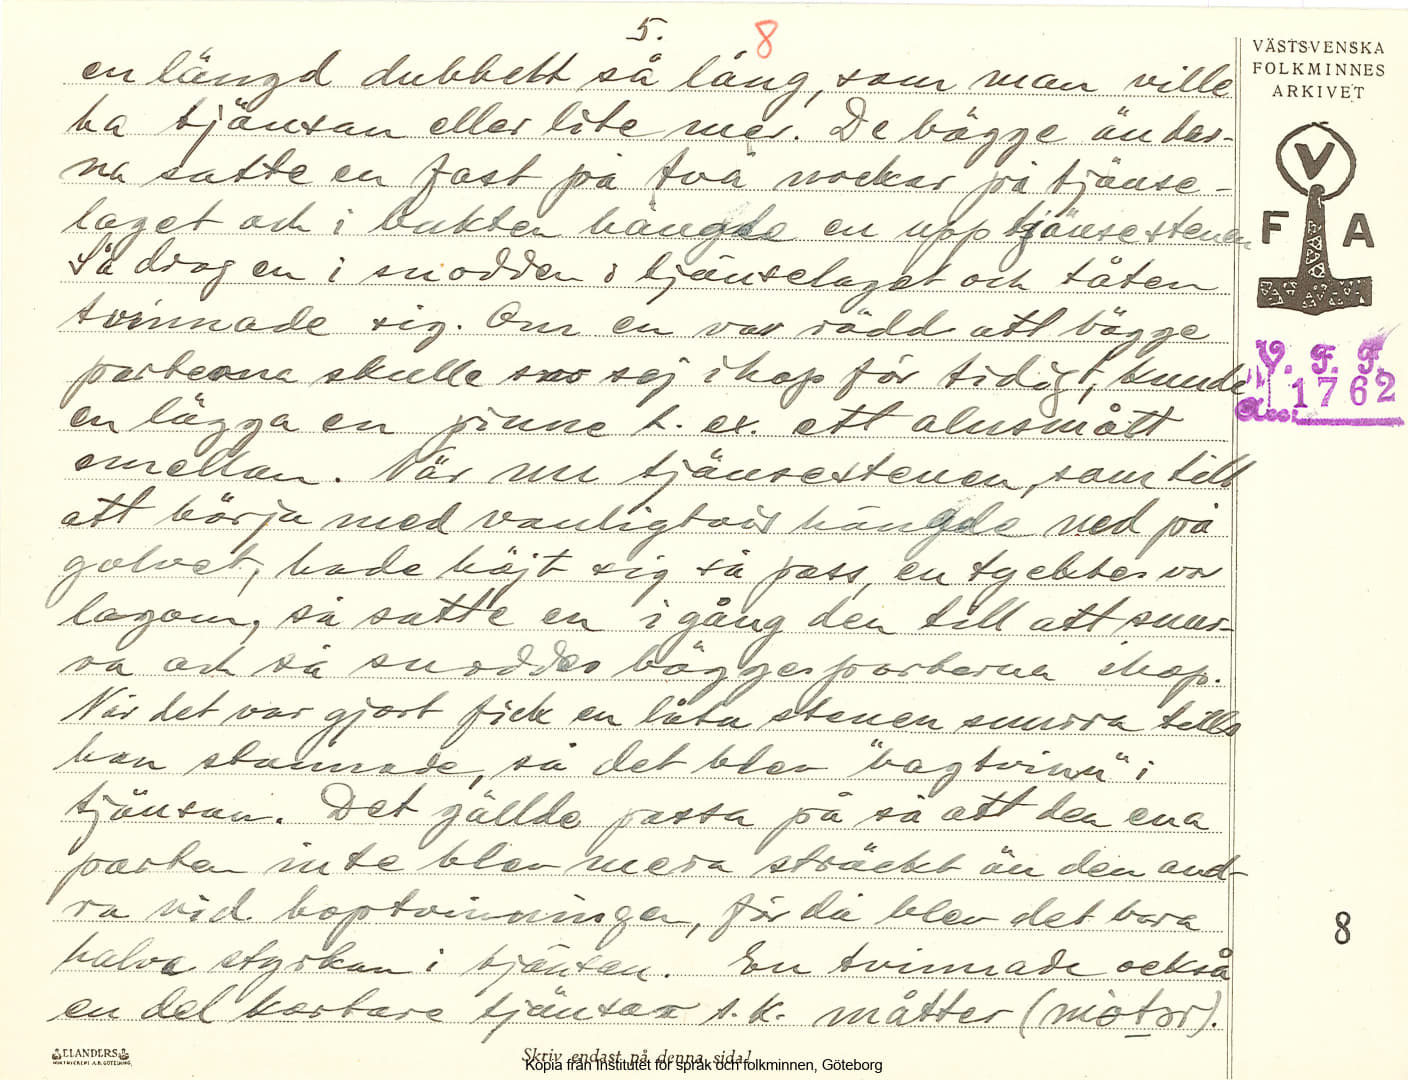 5. 8
VÄSTSVENSKA
FOLKMINNES
ARKIVET
V
F A
V. F. F.
1762
en längd dubbelt så lång, som man ville
ha tjänsan eller lite mer. De bägge ändar-
na satte en fast på två nockar på tjänse-
laget och i bukten hängde en upp tjänsestenen
Så drog en i snodden i tjänselaget och tåten
tvinnade sig. Om en var rädd att bägge
parterna skulle sno sej ihop för tidigt, kunde
en lägga en pinne t. ex. ett alnsmått
emellan. När nu tjänsestenen, som till
att börja med vanligtvis hängde ned på
golvet, hade höjt sig så pass, en tyckte var
lagom, så satte en igång den till att snur-
ra och så snoddes bägge parterna ihop.
När det var gjort fick en låta stenen snurra tills
han stannade, så det blev "bagtvinn" i
tjänsan. Det gällde passa på så att den ena
parten inte blev mera sträckt än den and-
ra vid hoptvinningen, för då blev det bara
halva styrkan i tjänsan. En tvinnade också
en del kortare tjänsor s.k. måtter (mòtər).
8
ELANDERS
Skriv endast på denna sida!
Kopia från Institutet för språk och folkminnen, Göteborg